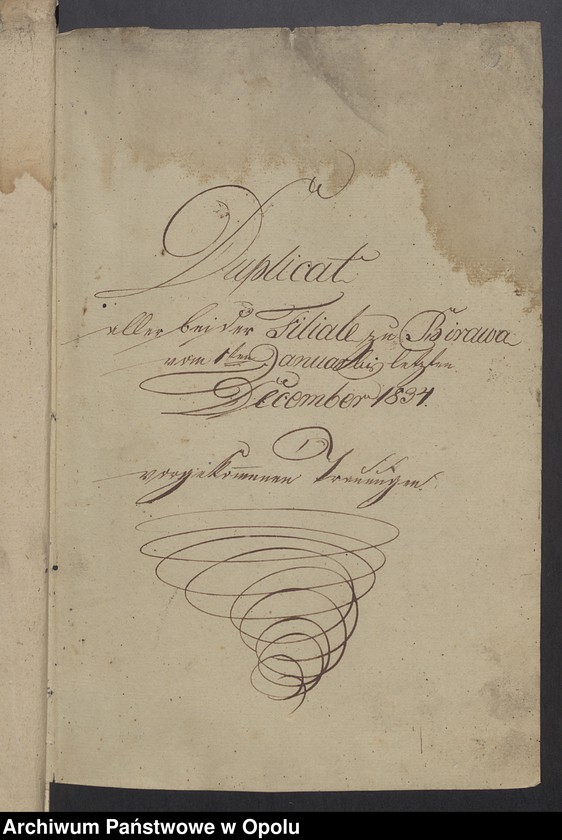 Duplicat
aller bei der Filiale zu Birawa
vom 1ten Januar bis letzten
December 1834.
vorgekommenen Trauungen.
Archiwum Państwowe w Opolu